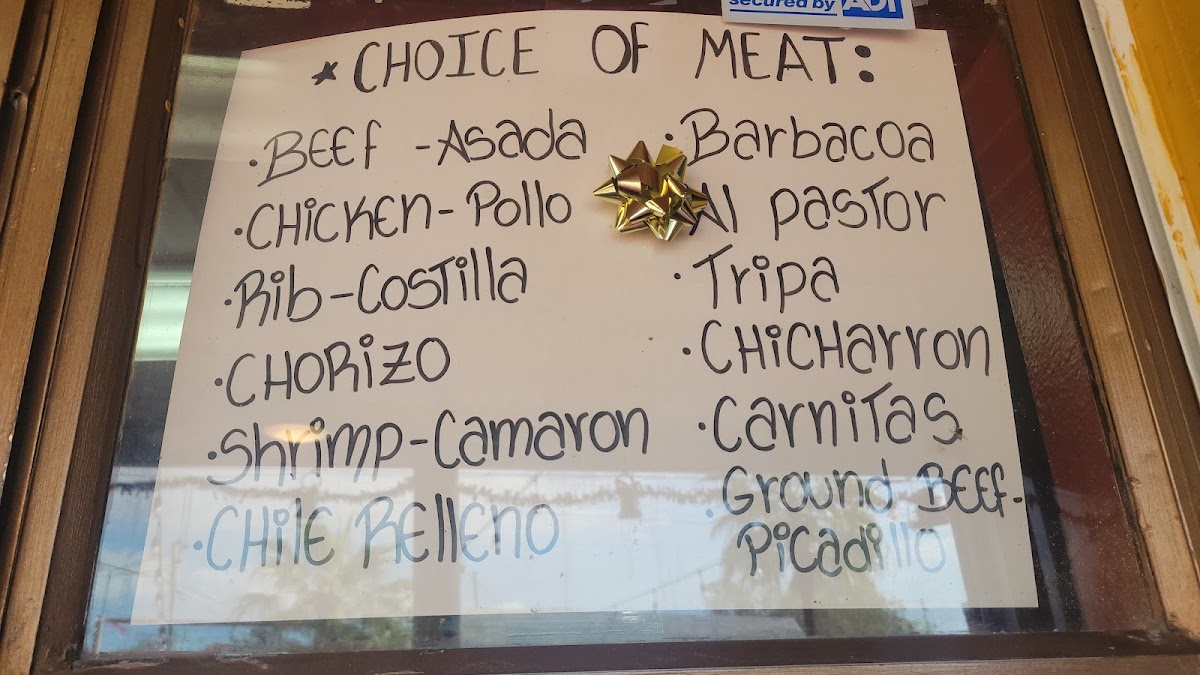 secured by ADT
* CHOICE OF MEAT:
• BEEF - Asada
• CHICKEN - Pollo
• Rib - Costilla
• CHORIZO
• Shrimp - Camaron
• CHILE RELLENO
• Barbacoa
Al pastor
• Tripa
• CHICHARRON
• Carnitas
• Ground BEEF -
Picadillo